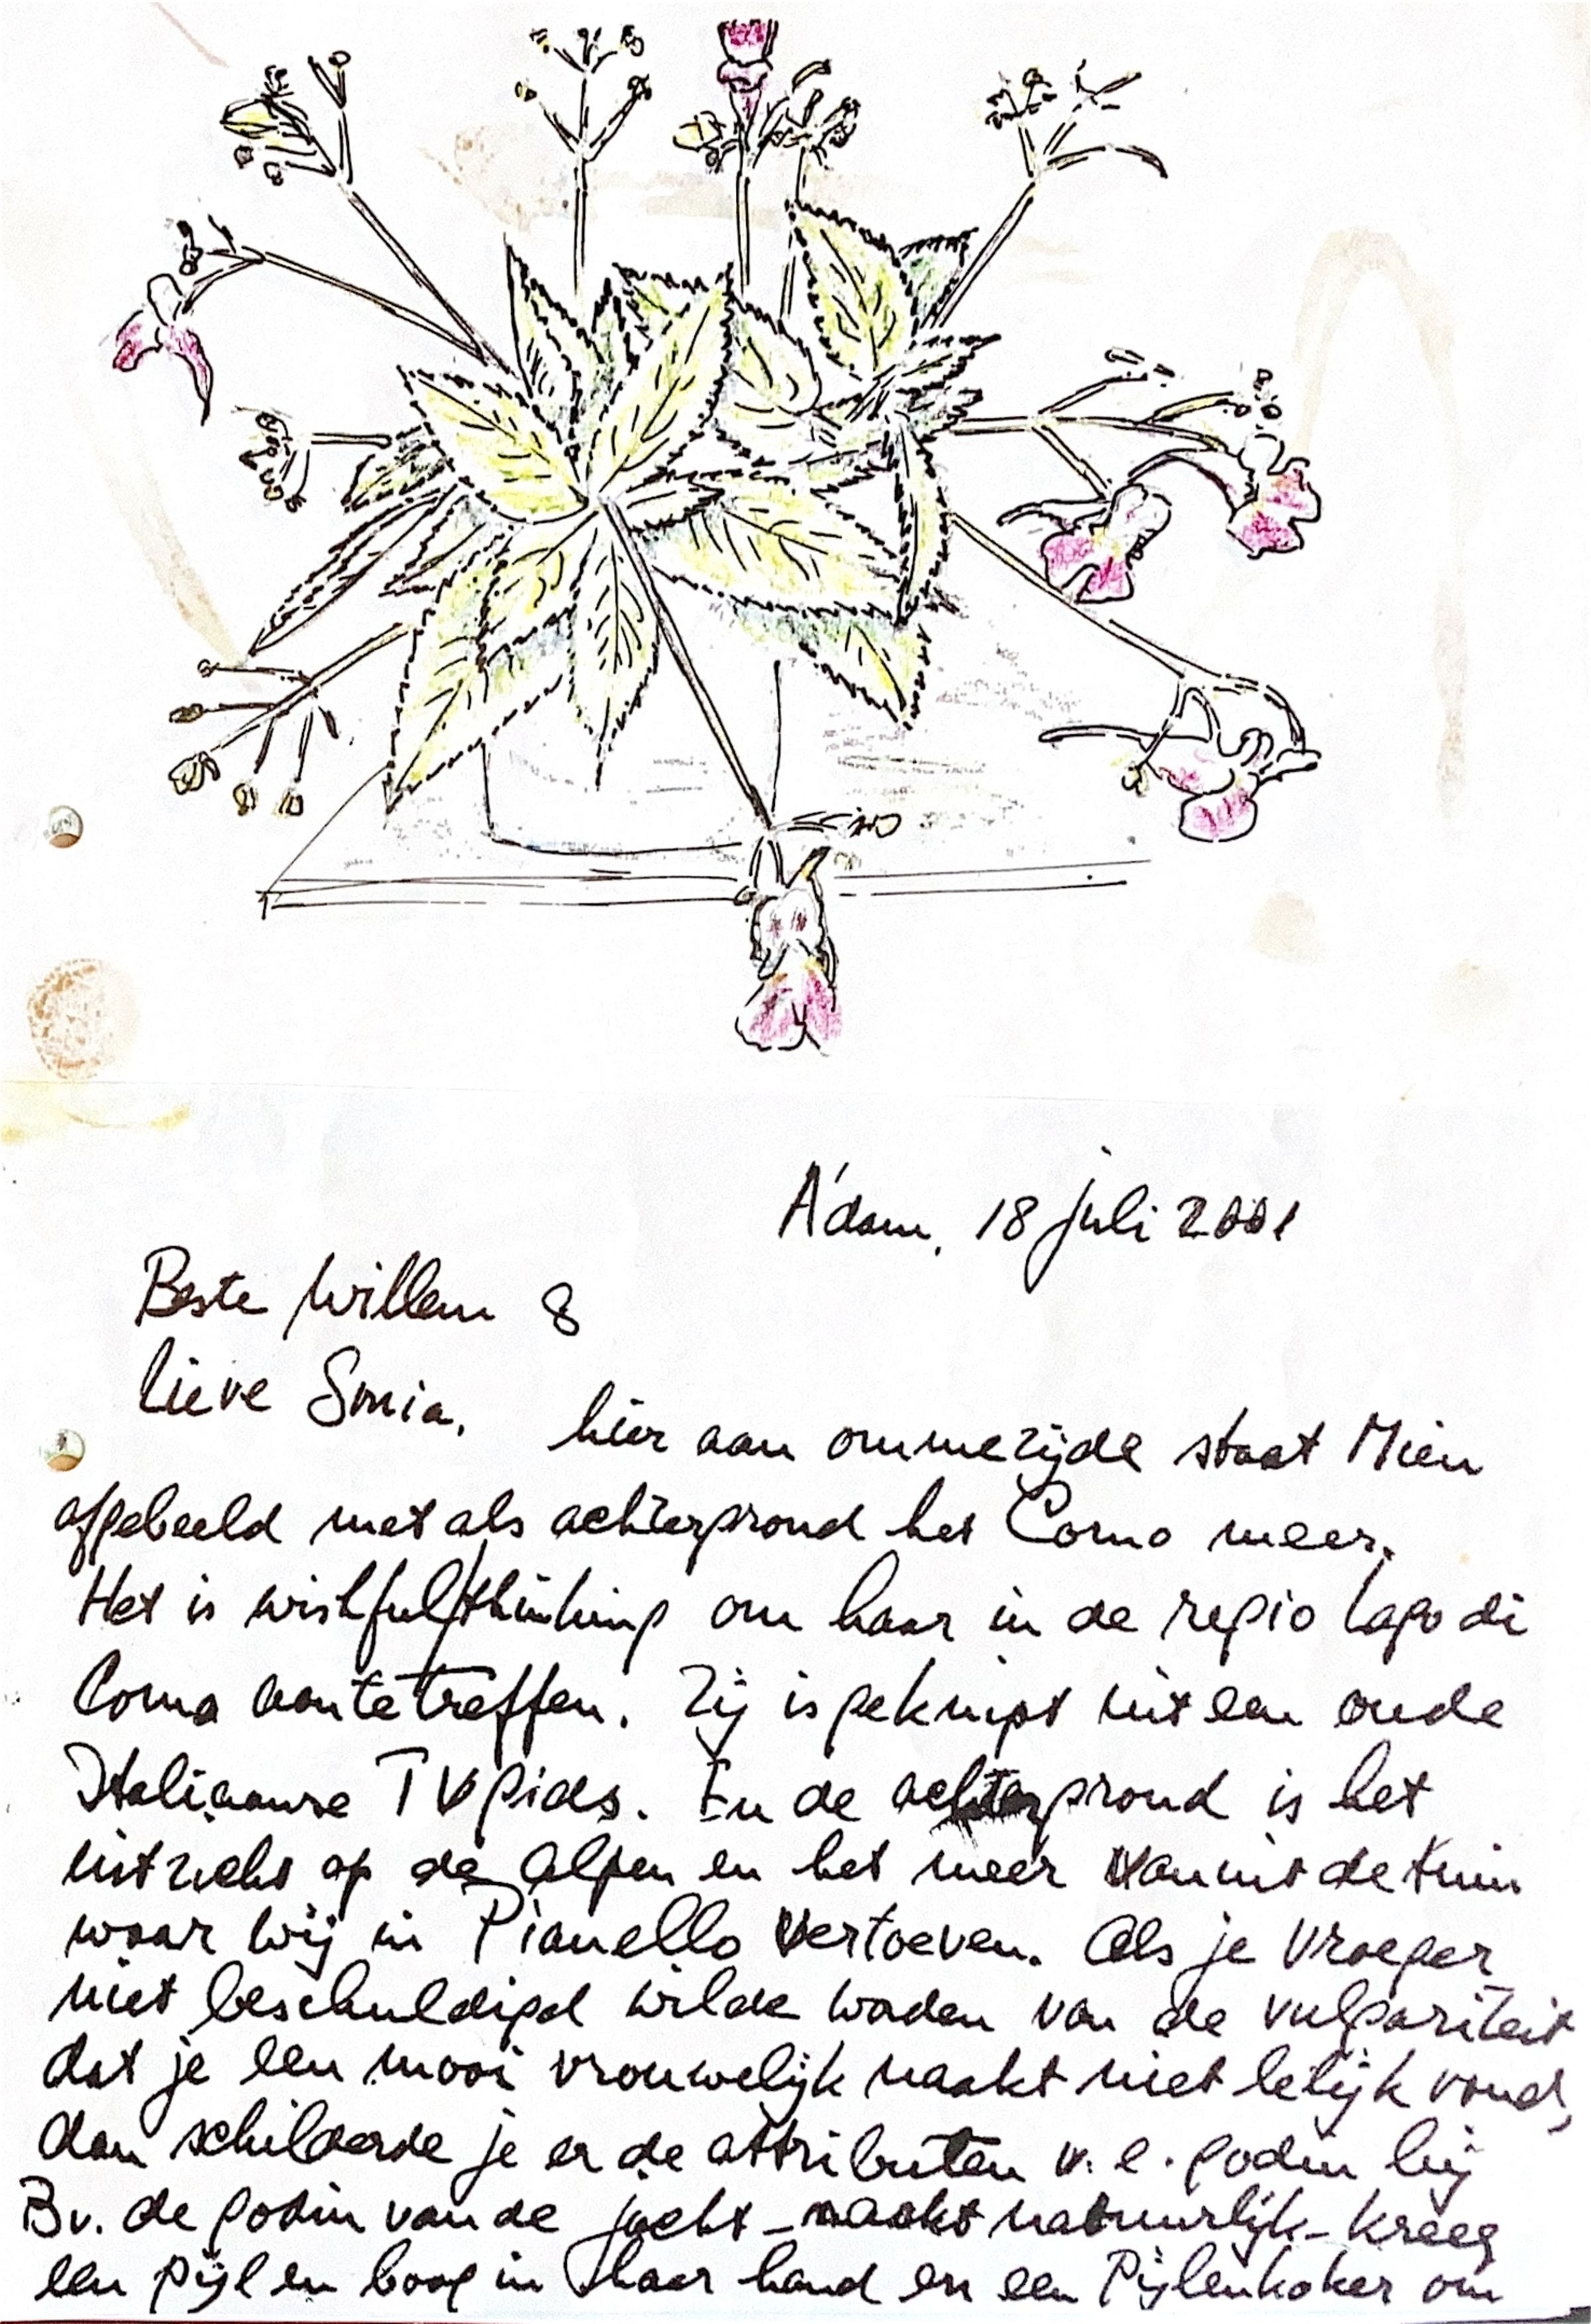 A'dam, 18 juli 2001
Beste Willem &
lieve Sonia,
hier aan ommezijde staat Mien
afgebeeld met als achtergrond het Como meer.
Het is wishful/thinking om haar in de regio Lago di
Como aan te treffen. Zij is geknipt uit een oude
Italiaanse TV gids. En de achtergrond is het
uitzicht op de Alpen en het meer vanuit de tuin
waar wij in Pianello vertoeven. Als je vroeger
niet beschuldigd wilde worden van de vulgariteit
dat je een mooi vrouwelijk naakt niet lelijk vond,
dan schilderde je er de attributen v.e. godin bij
Bv. de godin van de jacht - naakt natuurlijk - kreeg
een pijl en boog in haar hand en een Pijlenkoker om